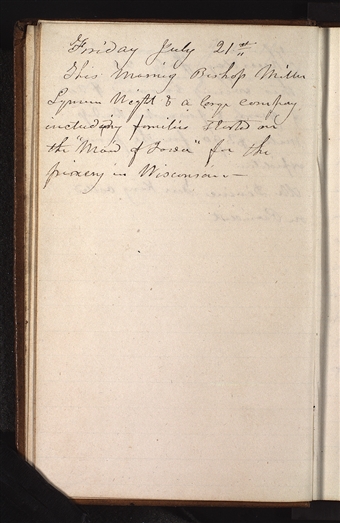 Friday July 21st
This Morning Bishop Miller
Lyman Wight & a large company
including families started on
the "Maid of Iowa" for the
pinery in Wisconsan—